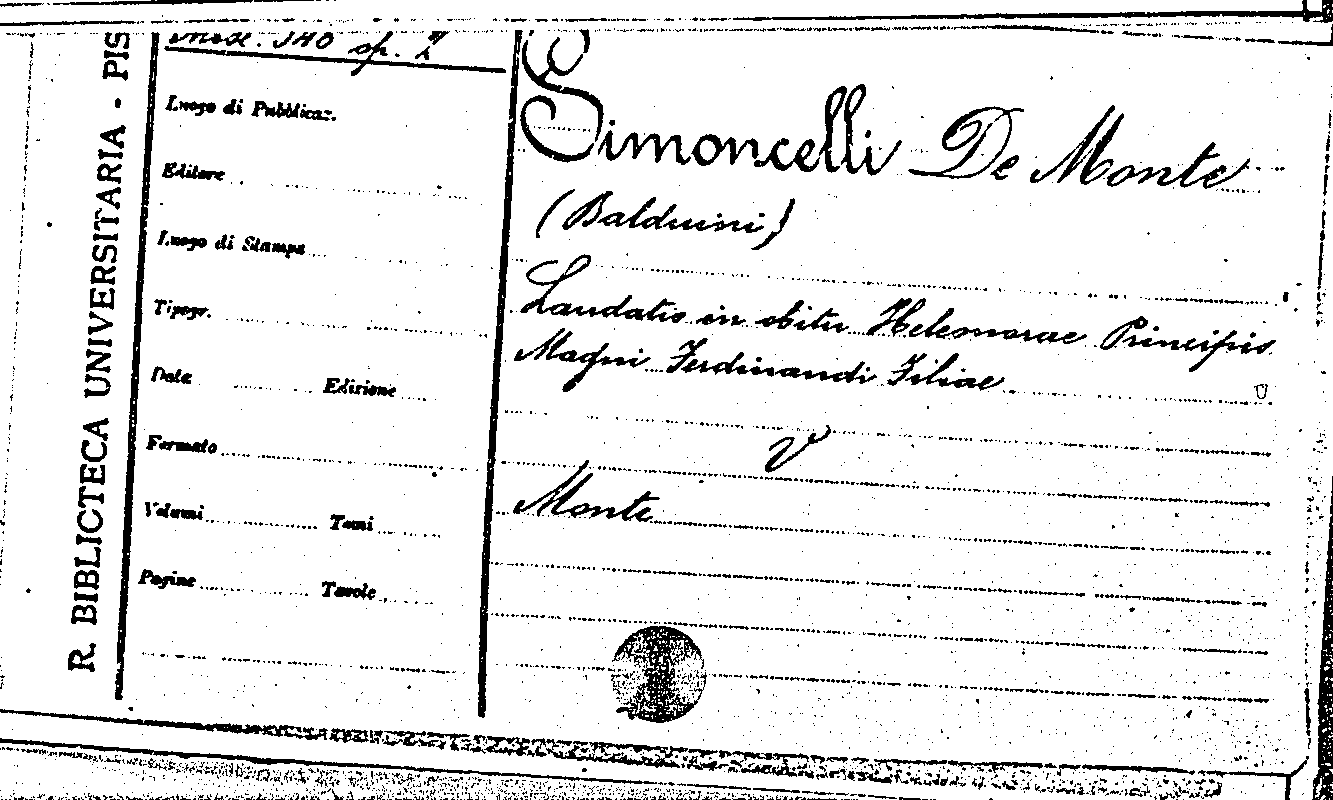 R. BIBLIOTECA UNIVERSITARIA - PIS
Misc. 340 sp. 4
Luogo di Pubblicaz.
Editore
Luogo di Stampa
Tipogr.
Data Edizione
Formato
Volumi Tomi
Pagine Tavole
Simoncelli De Monte
(Balduini)
Laudatio in obitu Heleonorae Principis
Magni Ferdinandi Filiae
V
Monte